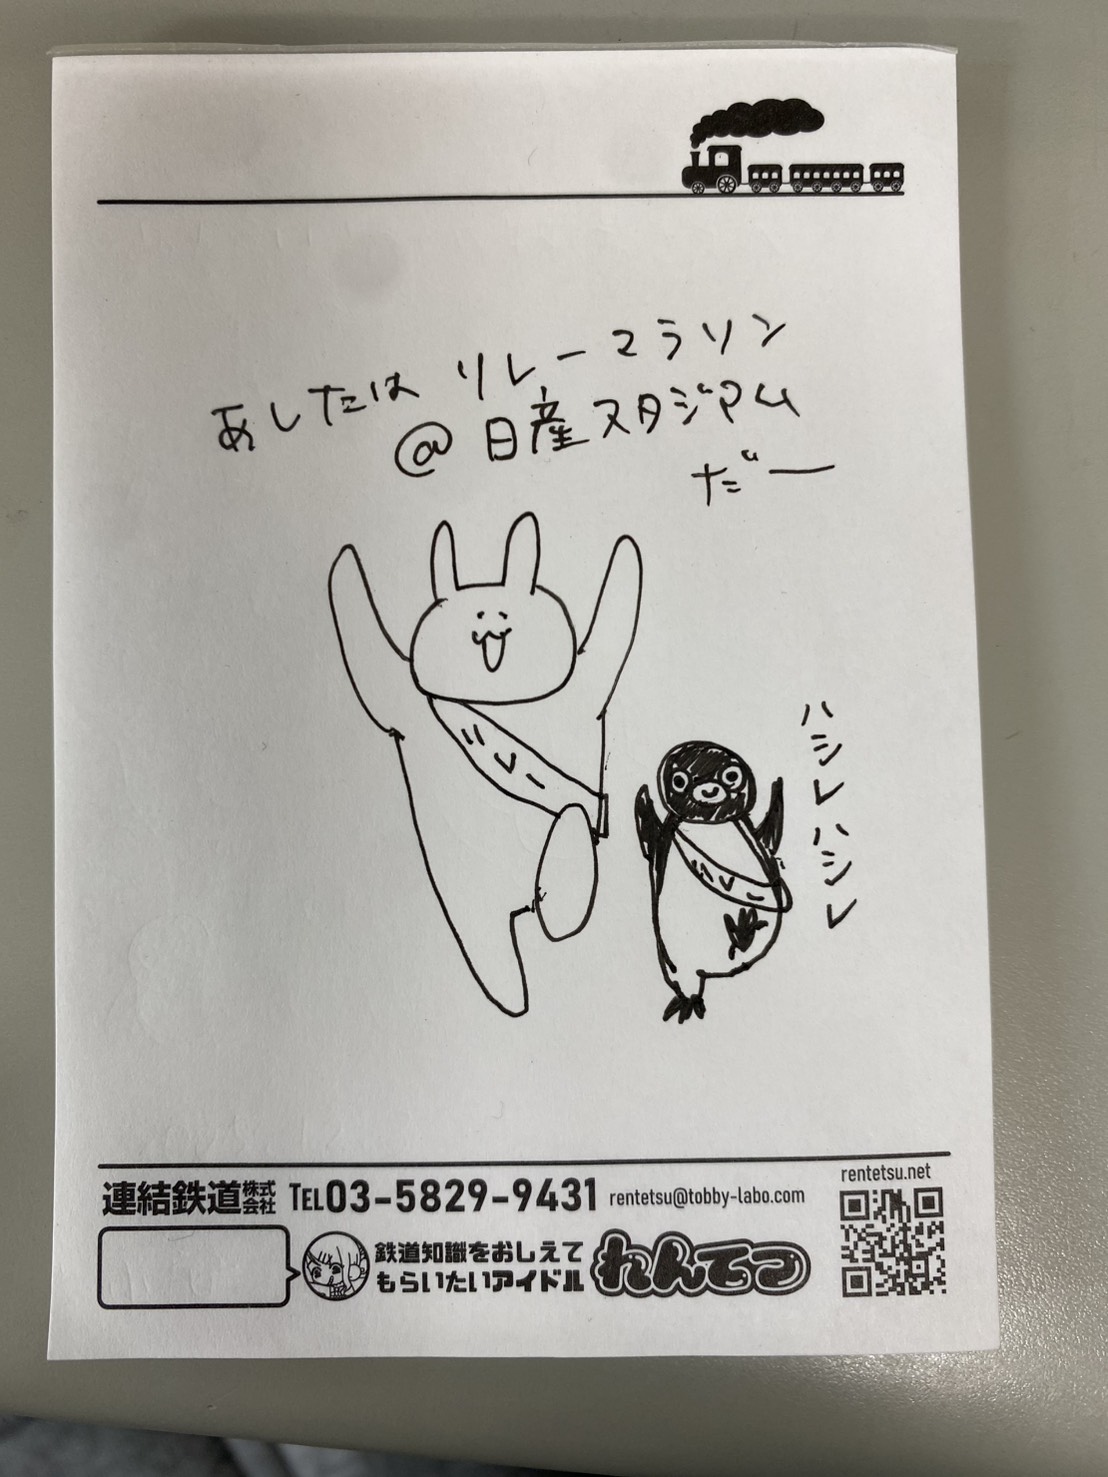 あしたは リレーマラソン
@ 日産スタジアム
だー
リレー
リレー
ハシレハシレ
rentetsu.net
連結鉄道株式会社 TEL03-5829-9431 rentetsu@tobby-labo.com
鉄道知識をおしえて
もらいたいアイドル れんてつ